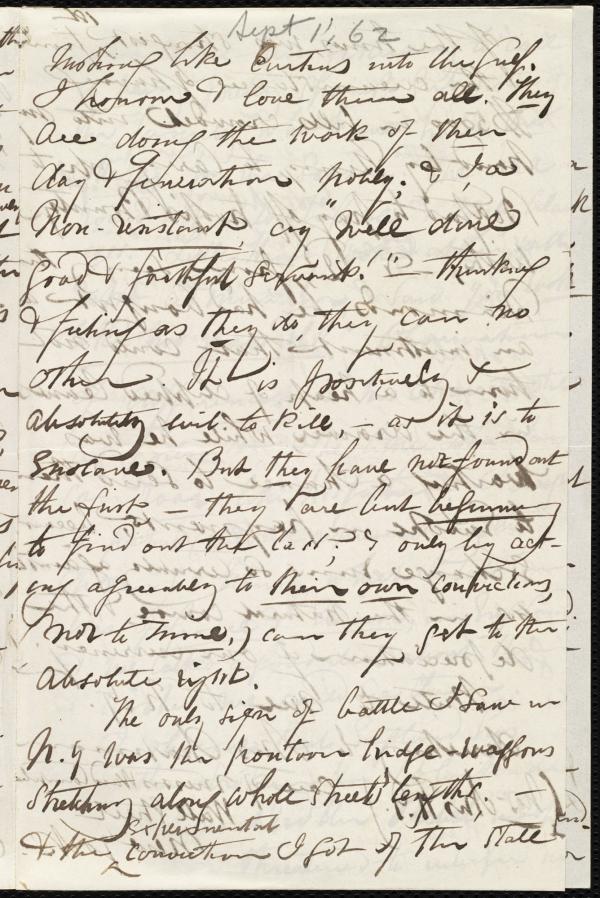 Sept 1, 62
nothing like Curtius into the gulf.
I honour & love them all. They
are doing the work of their
day & generation nobly; & I, a
Non-resistant, cry "Well done
good & faithful servants!" — thinking
& feeling as they do, they can no
other. It is positively &
absolutely evil to kill, — as it is to
enslave. But they have not found out
the first — they are but beginning
to find out the last; & only by act-
ing agreeably to their own convictions,
(not to mine,) can they get to the
absolute right.
The only sign of battle I saw in
N.Y was the pontoon bridge-waggons
stretching along whole streets' lengths. —
experimental
& the conviction I got of the state